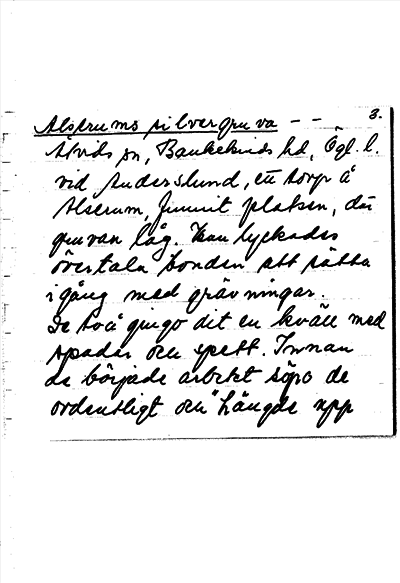 3.
Alstrums silvergruva - -
Åtvids sn, Bankekinds hd, Ögl. l.
vid Anderslund, ett torp å
Alserum, funnit platsen, där
gruvan låg. Han lyckades
övertala bonden att sätta
igång med grävningar.
De två gingo dit en kväll med
spadar och spett. Innan
de började arbetet söpo de
ordentligt och "hängde upp